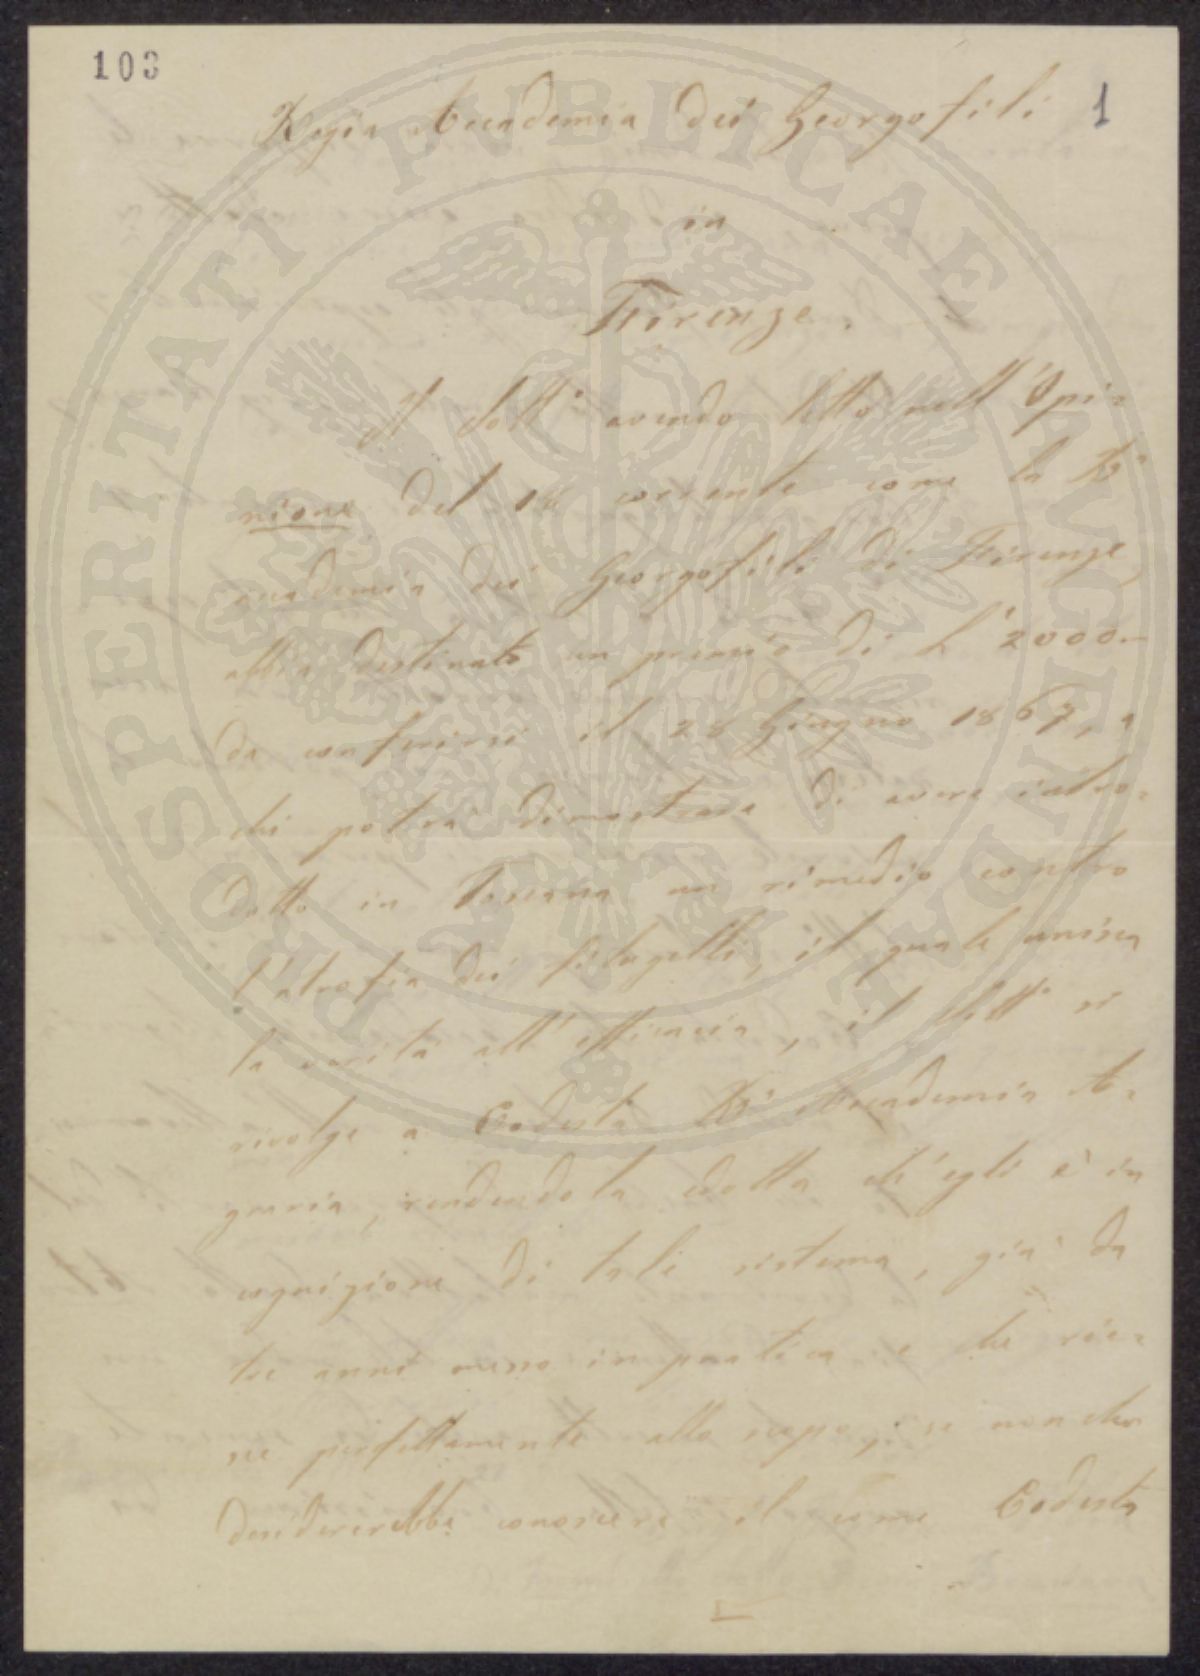 103
1
Regia Accademia dei Georgofili
in
Firenze.
Il sott.º avendo letto nell'Opi-
nione del 18 corrente come la Rª
accademia dei Georgofili di Firenze,
abbia destinato un premio di L. 2000.—
da conferirsi il 28 Giugno 1867, a
chi potrà dimostrare di avere intro-
dotto in Toscana un rimedio contro
l'atrofia dei filugelli, il quale unisca
la varità all'efficacia, il sott.º si
rivolge a Codesta Rª Accademia A-
graria, rendendola edotta ch'egli è in
cognizione di tale sistema, già da
tre anni messo in pratica e che riu-
scì perfettamente allo scopo, se non che
desidererebbe conoscere il come Codesta
PROSPERITATI PVBLICAE AVGENDAE